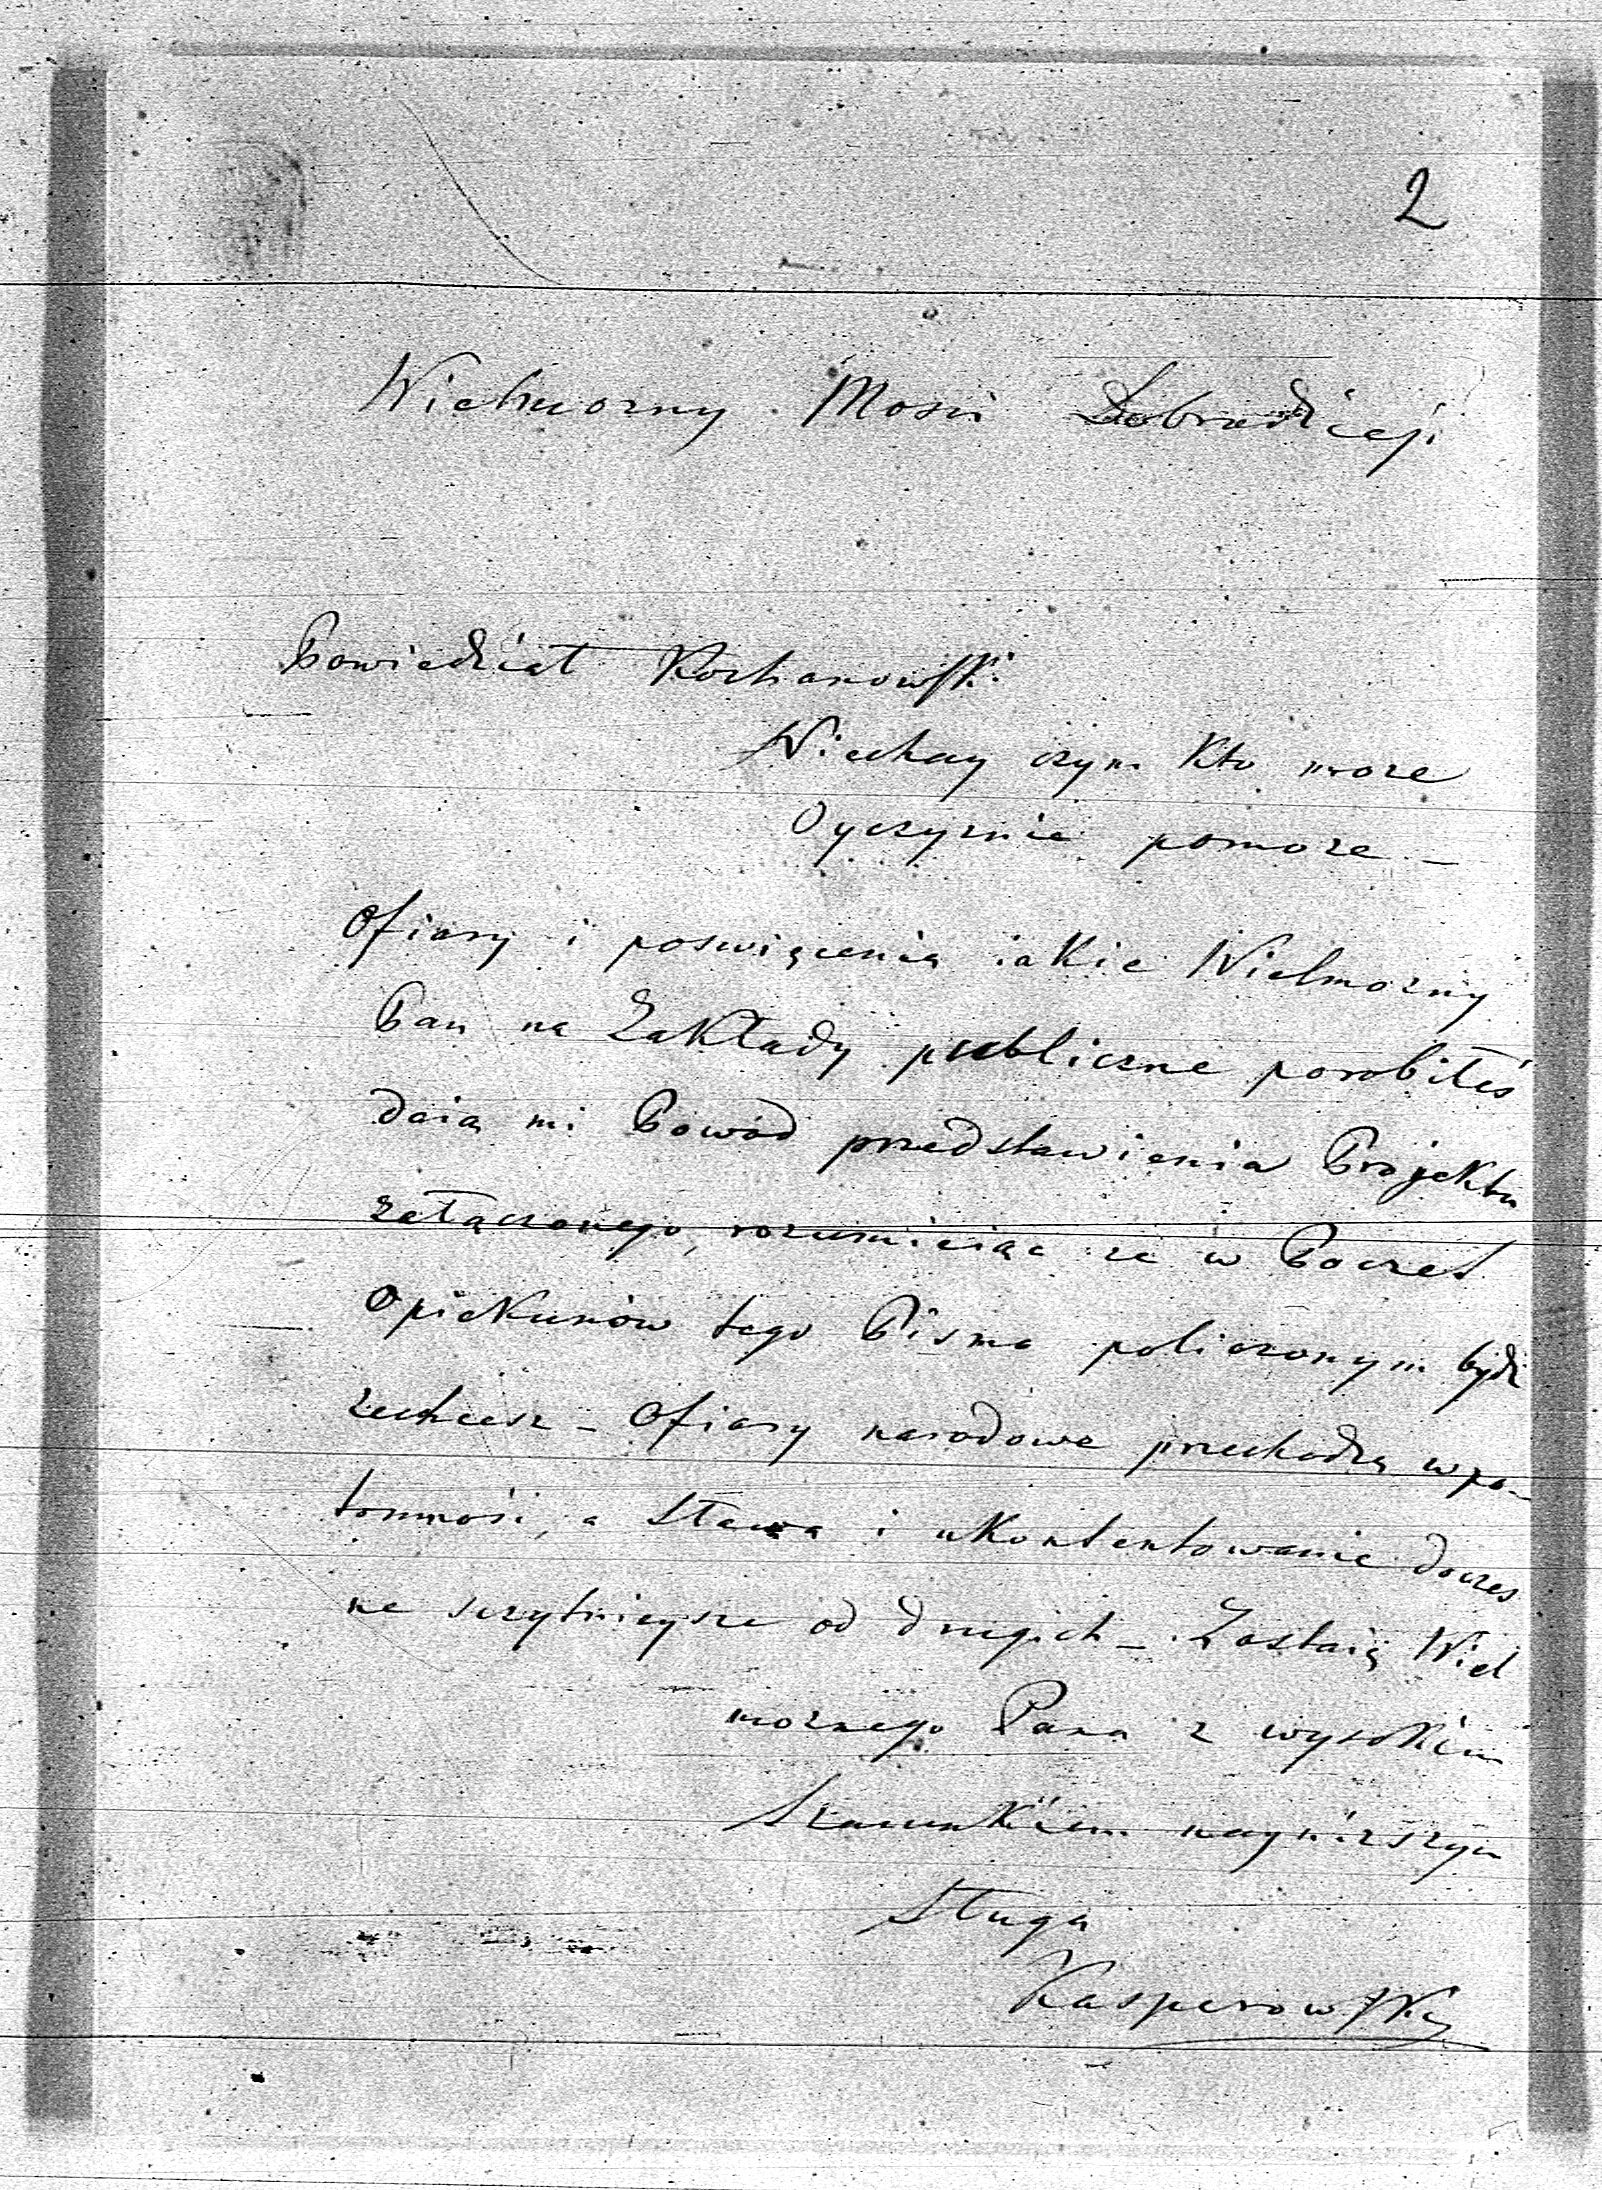 2
Wielmozny Mosci Dobrodzieju
Powiedział Kochanowski
Niechay czym Kto moze
Oyczyznie pomoze –
Ofiary i poswięcenia iakie Wielmozny
Pan na Zakłady publiczne porobiłeś
daią mi Powód przedstawienia Projektu
załączonego, rozumieiąc ze w Poczet
Opiekunów tego Pisma policzonym bydź
zechcesz – Ofiary narodowe przechodzą w po-
tomność, a Sława i ukontentowanie docześ
ne szczytnieysze od drugich – Zostaię Wiel
moznego Pana z wysokim
Szacunkiem naynizszym
Sługą
Kasperowski